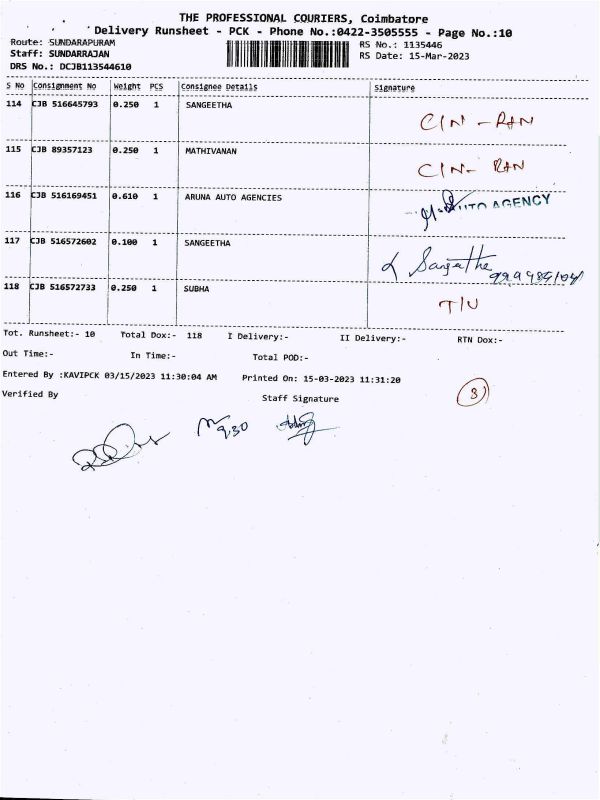 THE PROFESSIONAL COURIERS, Coimbatore
Delivery Runsheet - PCK - Phone No.:0422-3505555 - Page No.:10
Route: SUNDARAPURAM RS No.: 1135446
Staff: SUNDARRAJAN RS Date: 15-Mar-2023
DRS No.: DCJB113544610
S No Consignment No Weight PCS Consignee Details Signature
114 CJB 516645793 0.250 1 SANGEETHA
CIN - RAN
115 CJB 89357123 0.250 1 MATHIVANAN
CIN - RAN
116 CJB 516169451 0.610 1 ARUNA AUTO AGENCIES
AUTO AGENCY
117 CJB 516572602 0.100 1 SANGEETHA
Sangeetha
118 CJB 516572733 0.250 1 SUBHA
T/U
Tot. Runsheet:- 10 Total Dox:- 118 I Delivery:- II Delivery:- RTN Dox:-
Out Time:- In Time:- Total POD:-
Entered By :KAVIPCK 03/15/2023 11:30:04 AM Printed On: 15-03-2023 11:31:20
Verified By Staff Signature
3)
9.30